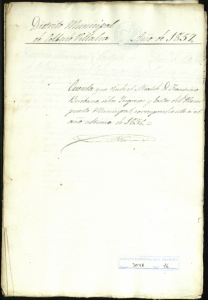 Distrito Municipal
de Collado Villalva Año de 1854.
Cuenta que rinde el Alcalde D. Francisco
de los Ingresos y Gastos del Presu
puesto Municipal correspondiente a el
año ultimo de 1854.